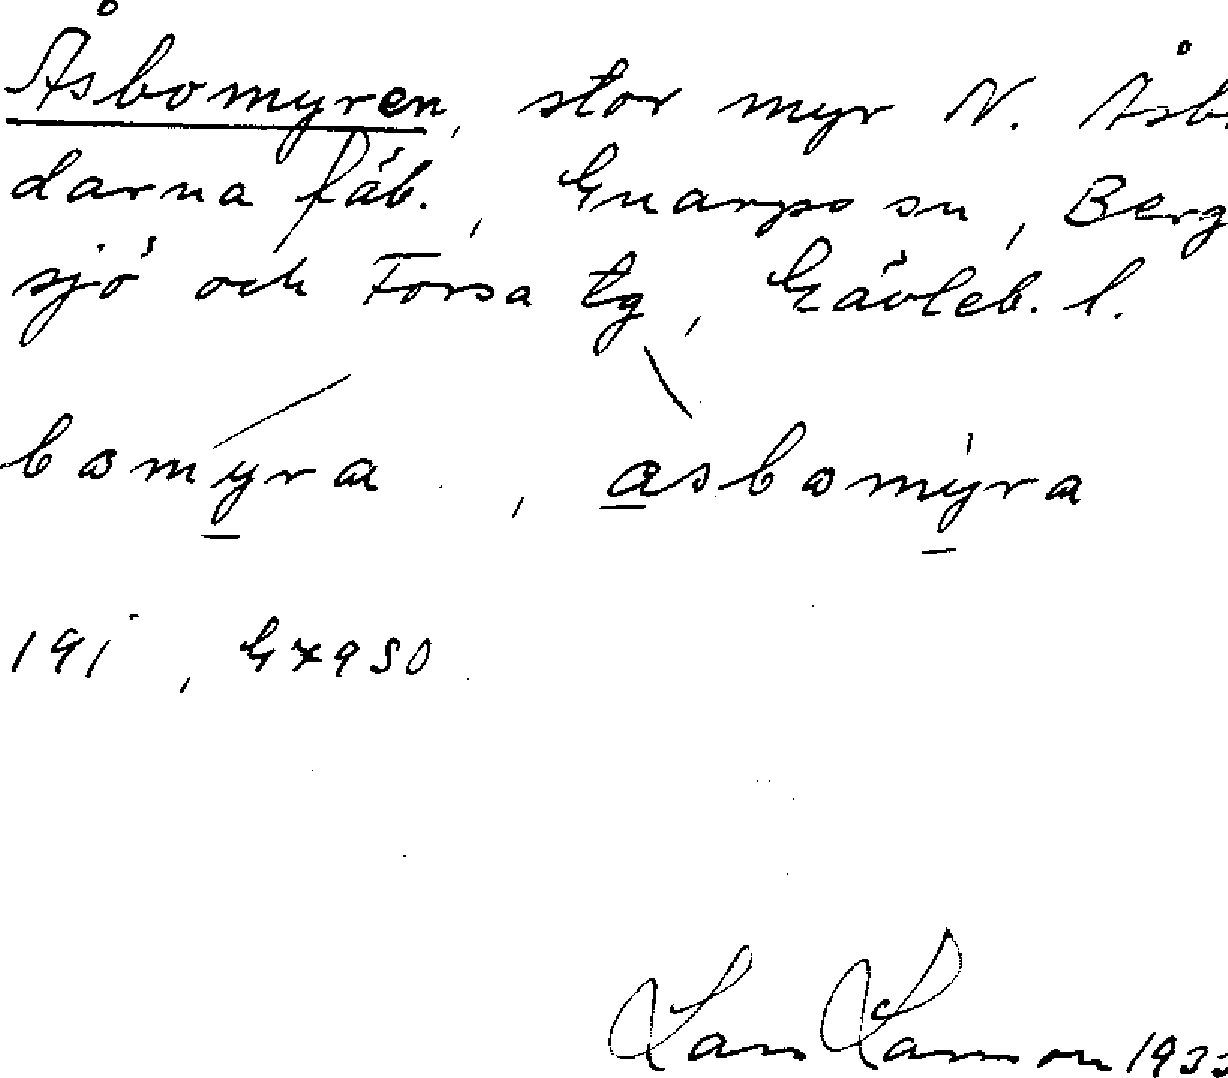 Åsbomyren, stor myr N. Åsbo
darna fäb., Gnarps sn, Berg
sjö och Forsa tg, Gävleb. l.
bomyra, asbomyra
191, G×9S0
Lars Larsson 1933